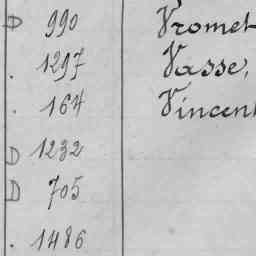 D 990 Vromet
. 1297 Vasse,
. 164 Vincent
D 1232
D 705
. 1486